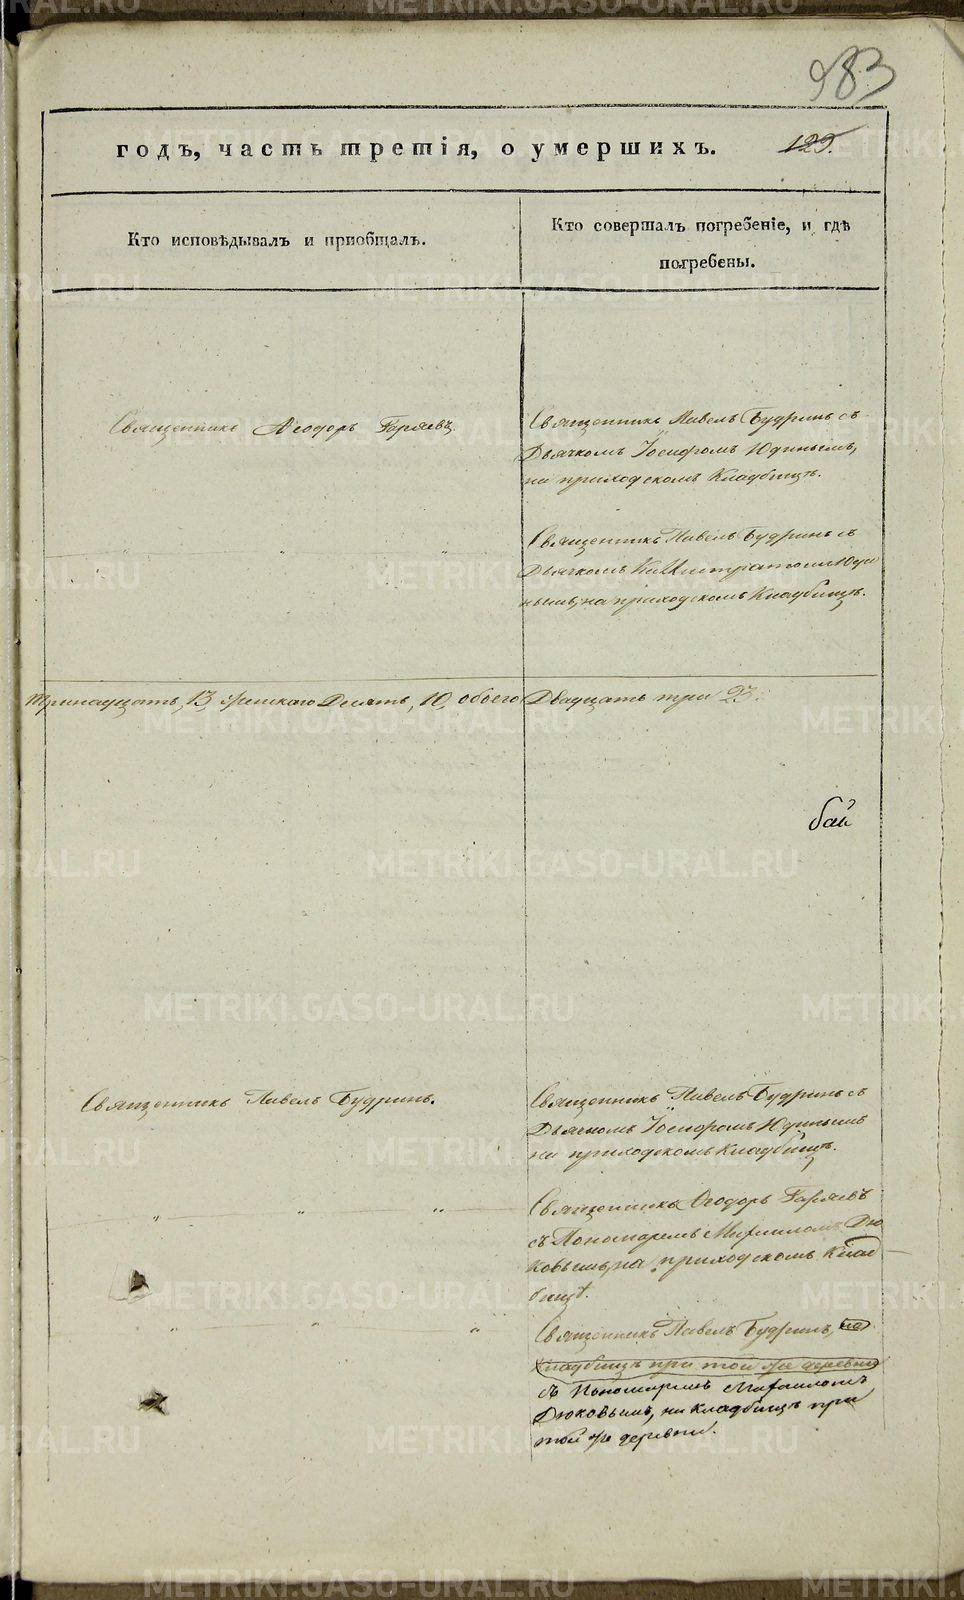 983
годъ, часть третія, о умершихъ.
129.
Кто исповѣдывалъ и приобщалъ.
Кто совершалъ погребеніе, и гдѣ
погребены.
Священникъ Ѳеодоръ Гаряевъ
Священникъ Павелъ Будринъ съ
Дьячкомъ Іосифомъ Юдинымъ,
на приходскомъ Кладбищѣ.
Священникъ Павелъ Будринъ съ
Дьячкомъ Юди
нымъ, на приходскомъ Кладбищѣ.
Тринадцать, 13, женскаго Десять, 10, обоего Двадцать три 23.
Священникъ Павелъ Будринъ.
Священникъ Павелъ Будринъ съ
Дьячкомъ Іосифомъ Юдинымъ
на приходскомъ Кладбищѣ.
Священникъ Ѳеодоръ Гаряевъ
съ Пономаремъ Михаиломъ Дю
ковымъ, на приходскомъ Клад
бищѣ.
Священникъ Павелъ Будринъ, на
Кладбищѣ при той же деревни
съ Пономаремъ Михаиломъ
Дюковымъ, на кладбищѣ при
той же деревни.
METRIKI.GASO-URAL.RU